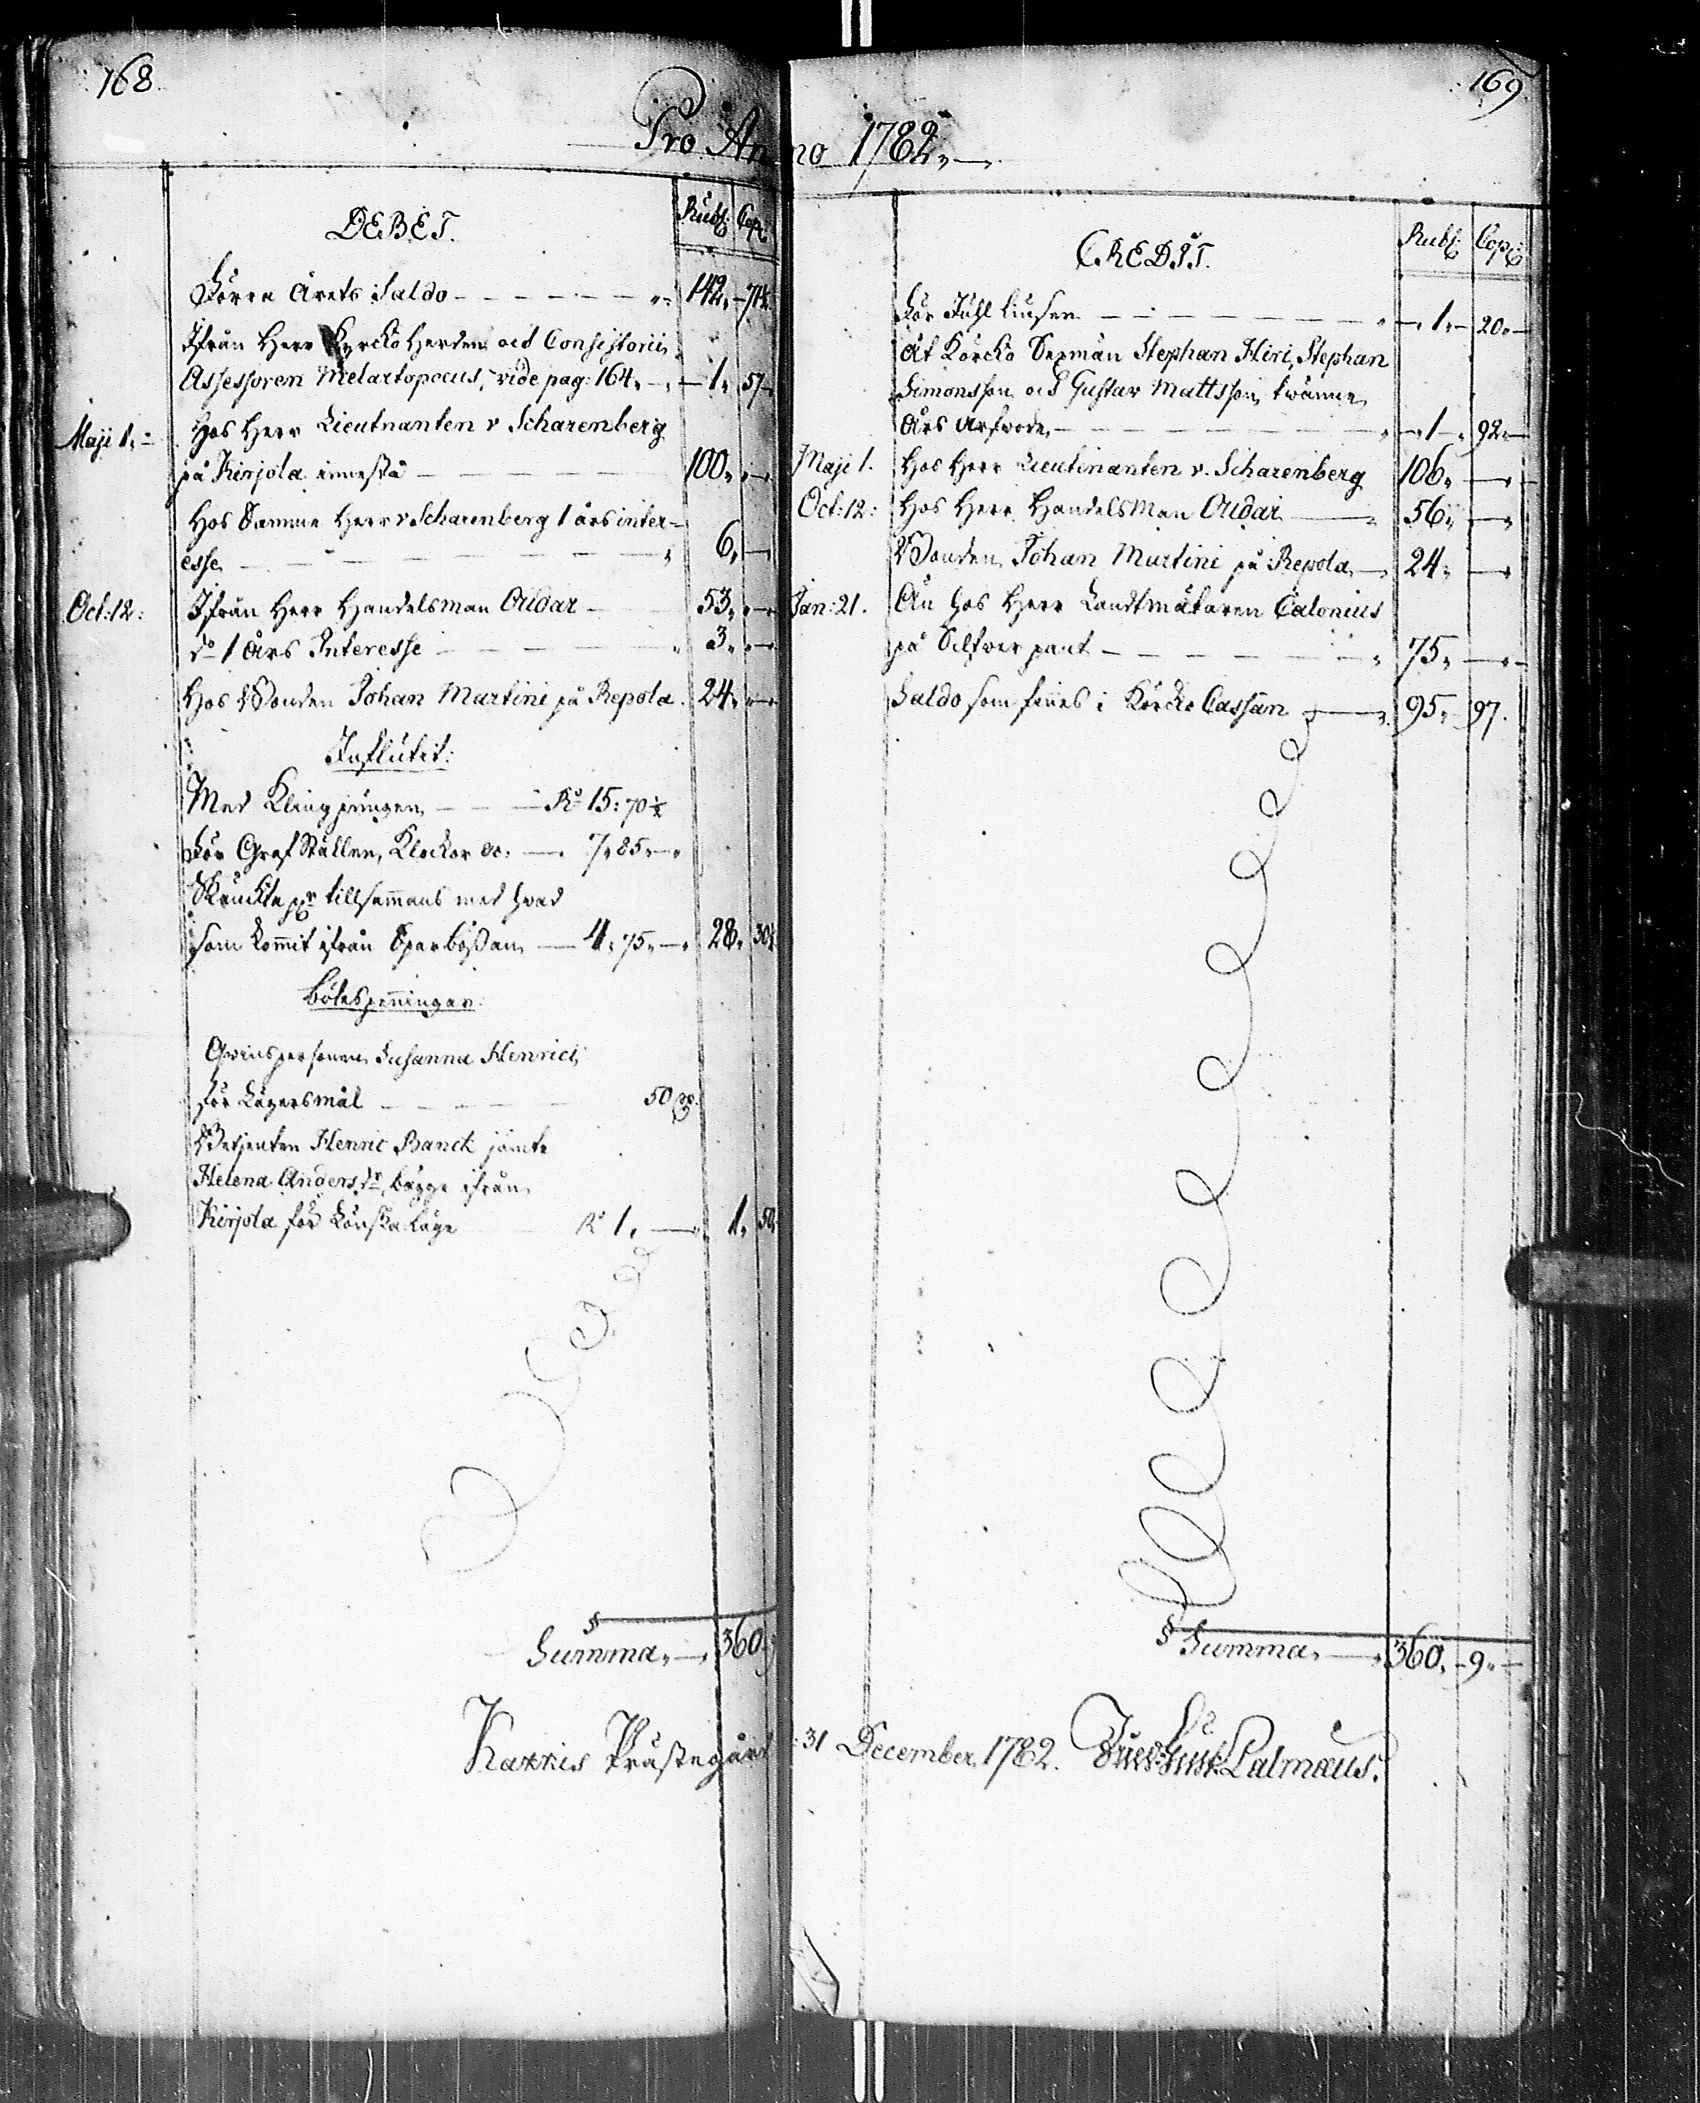 168
169
Pro Anno 1782.
DEBET.
Rubl: Cop:
Förra Årets Saldo 142. 71½
Ifrån Herr Kyrcko Herden och Consistorii
Assessoren Melartopoeus, vide pag: 164. 1. 57
Maji 1. Hos Herr Lieutnanten v Scharenberg
på Kirjola innestå 100.
Hos Samme Herr v Scharenberg 1 års inter-
esse 6.
Oct: 12: Ifrån Herr Handelsman Oudar 53.
do 1 Års Interesse 3.
Hos Bonden Johan Martini på Repola 24.
Influtit:
Med Klingpungen Ro 15: 70½
För Graf Ställen, Klockor &c: 7. 85.
Skänckte pgr tillsammans med hvad
som kommit ifrån Sparbössan 4. 75. 28. 30½
Bötespenningar.
Qvinspersonen Susanna Henrici
för Lägersmål 50 cop:
Betjenten Henric Banck jämte
Helena Anders dr, bägge ifrån
Kirjola för Lönska läge Ro 1. 1. 50
Summa 360. 9
CREDIT.
Rubl: Cop:
För Juhl liusen 1. 20.
Åt Körcko Sexmän Stephan Hiri, Stephan
Simonsson och Gustav Mattsson, twänne
Års Arfwode 1. 92.
Maji 1. Hos Herr Lieutinanten v. Scharenberg 106.
Oct: 12: Hos Herr Handelsman Oudar 56.
Bonden Johan Martini på Repola 24.
Jan: 21. Än hos Herr Landtmätaren Calonius
på Silfwer pant 75.
Saldo som finnes i Körcko Cassan 95. 97.
Summa. 360. 9.
Kakkis Prästegård 31 December 1782. Palmæus.